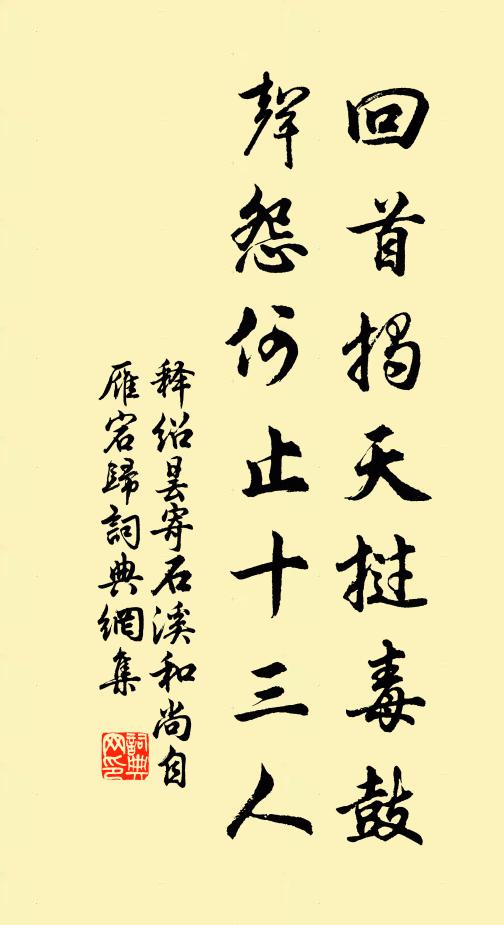 回首揭天撾毒鼓
聲怨何止十三人
釋紹曇寄石溪和尚自
雁宕歸詞典網集
詞典網印